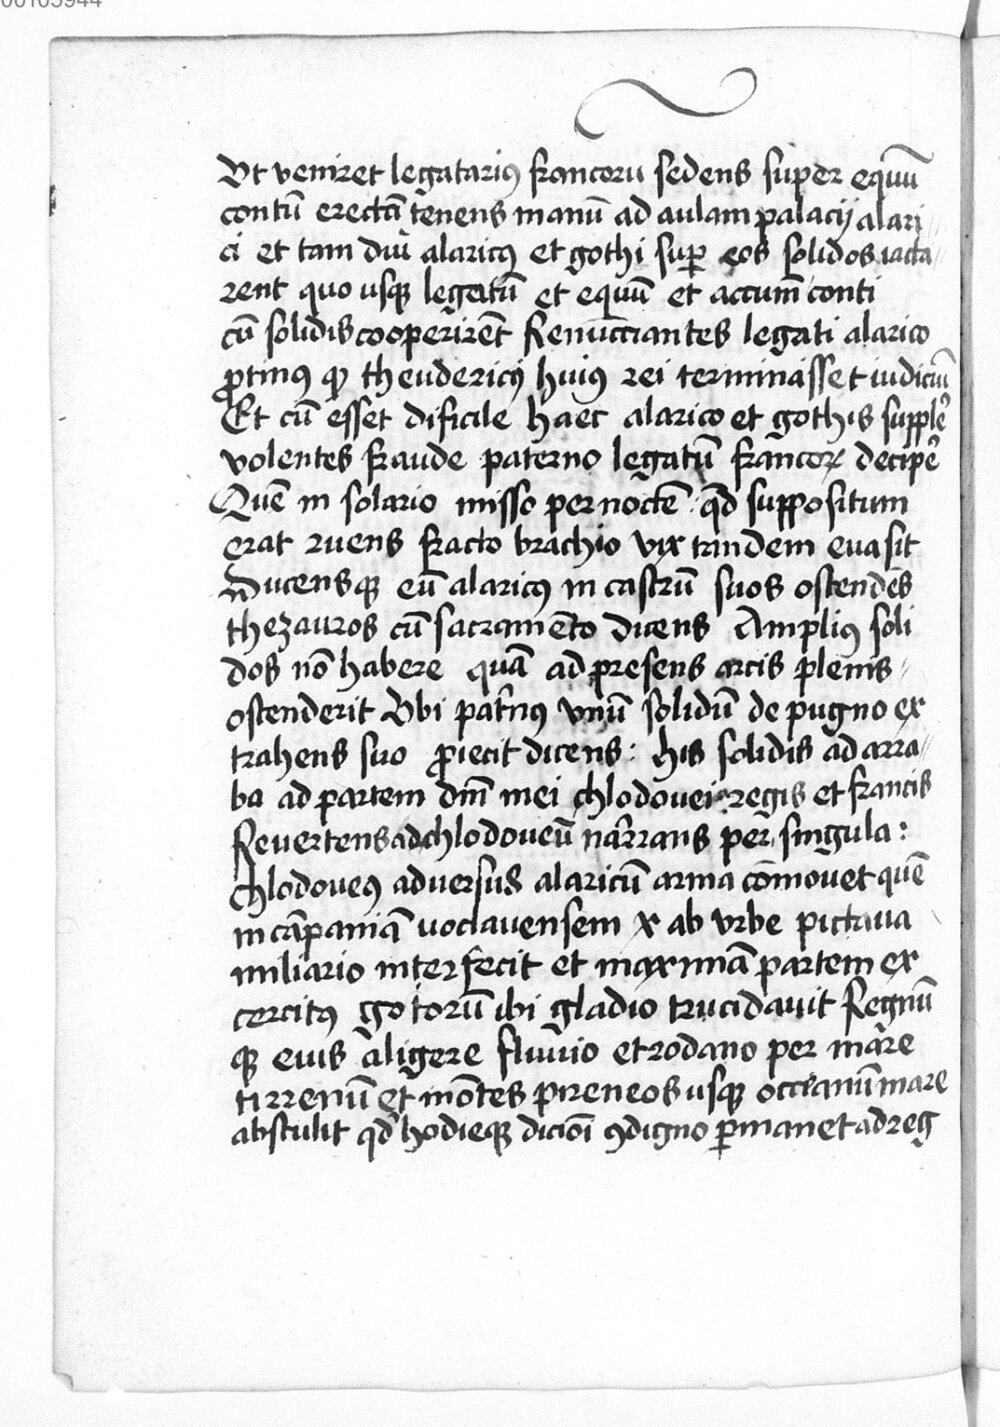 00103944
Vt veniret legatariꝰ francorū sedens super equū
contū erectū tenens manū ad aulam palacij alari
ci et tam diu alaricꝰ et gothi suꝑ eos solidos iacta
rent quo usqꝫ legatū et equū et accumē conti
cū solidis cooperirēt Renuncciantes legati alarico
ꝓtinꝰ ꝙ theudericij huiꝰ rei terminasset iudiciū
Et cū esset dificile haec alarico et gothis supplēr
volentes fraude paterno legatū francoꝝ decipēr
Quē in solario misso per noctē qd̄ suppositum
erat ruens fracto brachio vix tandem euasit
Ducensqꝫ eū alaricꝰ in castrū suos ostendēs
thezauros cū sacramēto dicens Ampliꝰ soli
dos nō habere quā ad presens arcis plenis
ostenderit Vbi pat̄nꝰ vnū solidū de pugno ex
trahens suo ꝓiecit dicens: his solidis ad arra
ba ad partem dn̄i mei chlodouei regis et francis
Revertens ad chlodoveū narrans per singula:
chlodoveꝰ adversus alaricū arma cōmovet quē
in cāpaniā voclavensem x ab vrbe pictava
miliario interfecit et maximā partem ex
cercitꝰ gotorū ibi gladio trucidavit Regnū
qꝫ euis a ligere fluvio et rodano per mare
tirrenū et mōtes pireneos usqꝫ occeanū mare
abstulit qd̄ hodieqꝫ diciōi ꝯdigno ꝑmanet ad reg